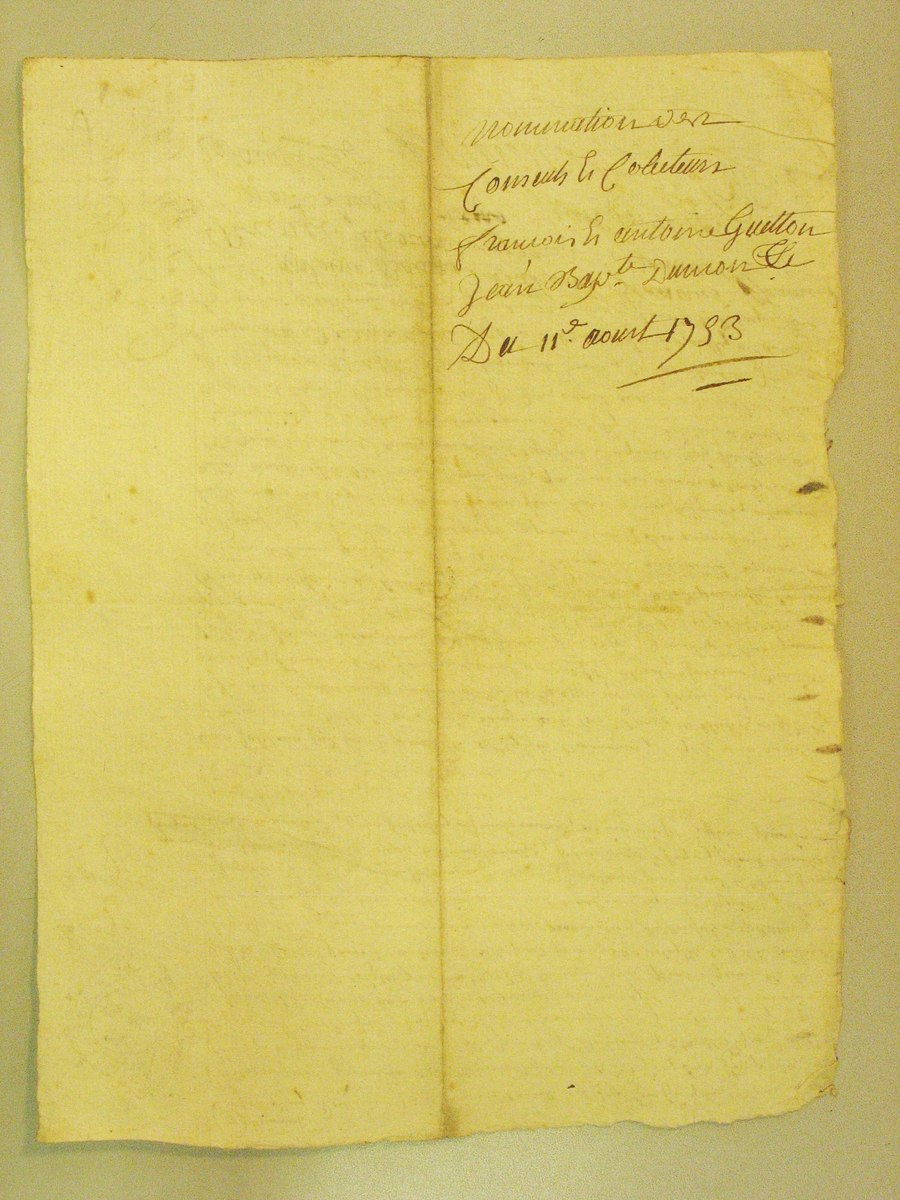 nomination des
Consuls & Colecteurs
francois & antoine Guitton
Jean Bap.te Dumon
Du 11e. aoust 1753